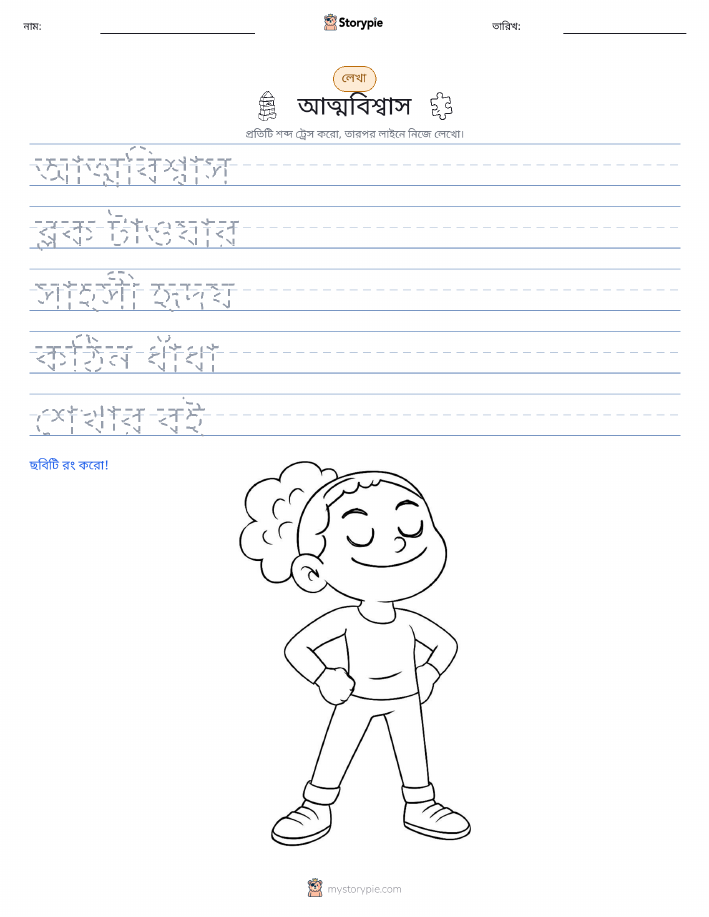 নাম:
Storypie
তারিখ:
লেখা
আত্মবিশ্বাস
প্রতিটি শব্দ ট্রেস করো, তারপর লাইনে নিজে লেখো।
আত্মবিশ্বাস
ব্লক টাওয়ার
সাহসী হৃদয়
কঠিন ধাঁধা
শেখার বই
ছবিটি রং করো!
mystorypie.com